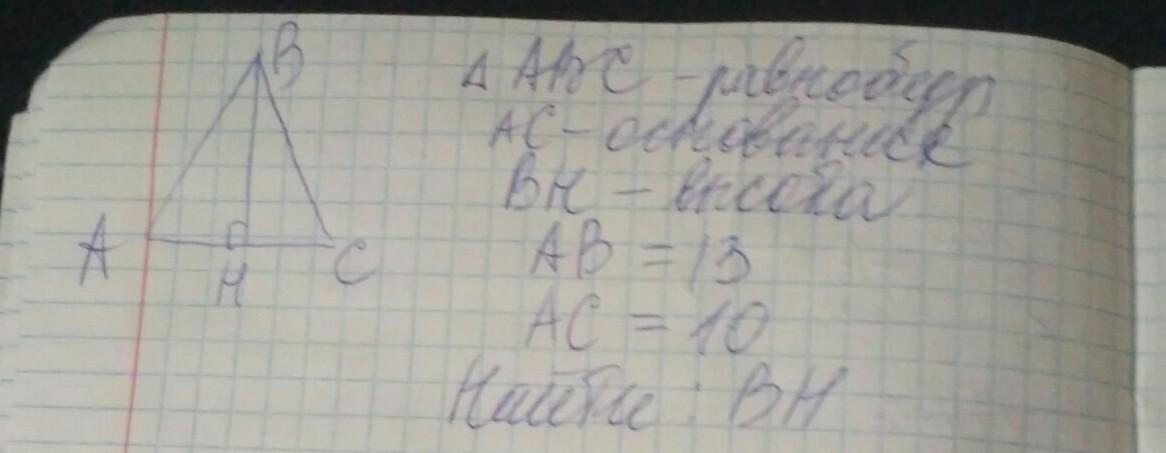 B
△ ABC - равнобедр
AC - основание
BH - высота
A H C
AB = 13
AC = 10
Найти: BH